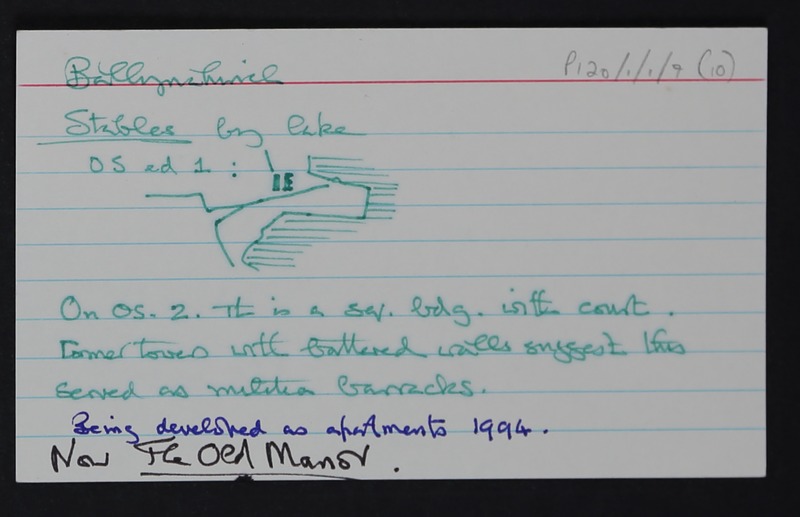 Ballynahinch
P120/1/1/9 (10)
Stables by lake
OS ed 1 :
On OS. 2. It is a sq. bdg. with court.
Corner towers with battered walls suggest this
served as militia barracks.
Being developed as apartments 1994.
Now The Old Manor.